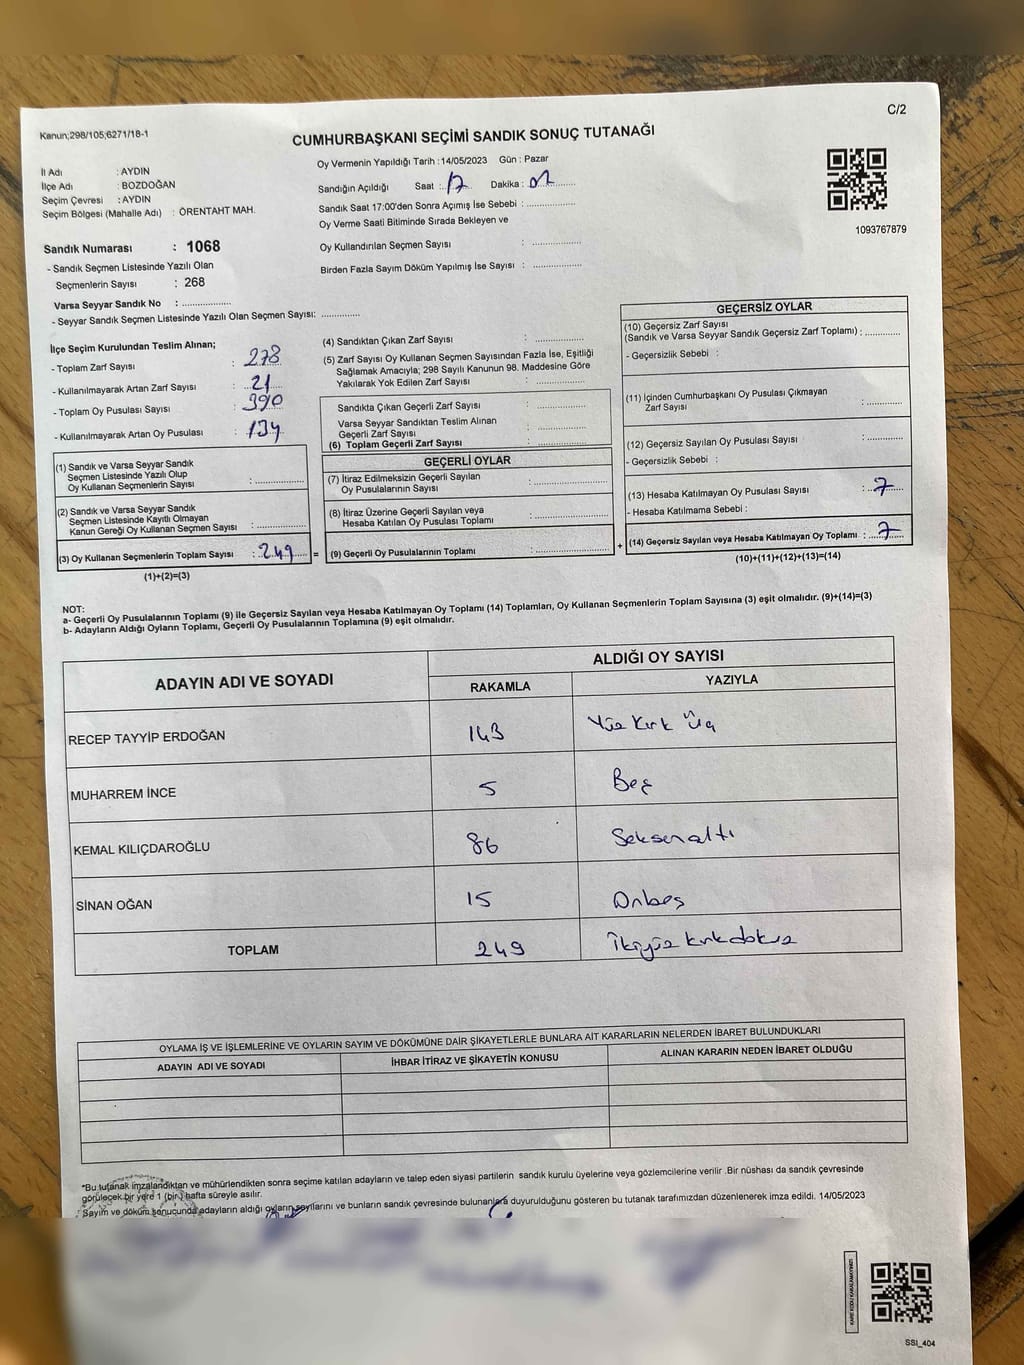 C/2
Kanun;298/105;6271/18-1
CUMHURBAŞKANI SEÇİMİ SANDIK SONUÇ TUTANAĞI
İl Adı : AYDIN
İlçe Adı : BOZDOĞAN
Seçim Çevresi : AYDIN
Seçim Bölgesi (Mahalle Adı) : ÖRENTAHT MAH.
Sandık Numarası : 1068
- Sandık Seçmen Listesinde Yazılı Olan
Seçmenlerin Sayısı : 268
Varsa Seyyar Sandık No : ...................
- Seyyar Sandık Seçmen Listesinde Yazılı Olan Seçmen Sayısı: ...............
Oy Vermenin Yapıldığı Tarih : 14/05/2023 Gün : Pazar
Sandığın Açıldığı Saat : 17 Dakika : 02
Sandık Saat 17:00'den Sonra Açımış İse Sebebi : ...................
Oy Verme Saati Bitiminde Sırada Bekleyen ve
Oy Kullandırılan Seçmen Sayısı : ...................
Birden Fazla Sayım Döküm Yapılmış İse Sayısı : ...................
1093767879
İlçe Seçim Kurulundan Teslim Alınan;
- Toplam Zarf Sayısı : 278
- Kullanılmayarak Artan Zarf Sayısı : 21
- Toplam Oy Pusulası Sayısı : 390
- Kullanılmayarak Artan Oy Pusulası : 134
(1) Sandık ve Varsa Seyyar Sandık
Seçmen Listesinde Yazılı Olup
Oy Kullanan Seçmenlerin Sayısı : ...................
(2) Sandık ve Varsa Seyyar Sandık
Seçmen Listesinde Kayıtlı Olmayan
Kanun Gereği Oy Kullanan Seçmen Sayısı : ...................
(3) Oy Kullanan Seçmenlerin Toplam Sayısı : 249 =
(1)+(2)=(3)
(4) Sandıktan Çıkan Zarf Sayısı : ...................
(5) Zarf Sayısı Oy Kullanan Seçmen Sayısından Fazla İse, Eşitliği
Sağlamak Amacıyla; 298 Sayılı Kanunun 98. Maddesine Göre
Yakılarak Yok Edilen Zarf Sayısı : ...................
Sandıkta Çıkan Geçerli Zarf Sayısı : ...................
Varsa Seyyar Sandıktan Teslim Alınan
Geçerli Zarf Sayısı : ...................
(6) Toplam Geçerli Zarf Sayısı : ...................
GEÇERLİ OYLAR
(7) İtiraz Edilmeksizin Geçerli Sayılan
Oy Pusulalarının Sayısı : ...................
(8) İtiraz Üzerine Geçerli Sayılan veya
Hesaba Katılan Oy Pusulası Toplamı : ...................
(9) Geçerli Oy Pusulalarının Toplamı : ................... +
GEÇERSİZ OYLAR
(10) Geçersiz Zarf Sayısı
(Sandık ve Varsa Seyyar Sandık Geçersiz Zarf Toplamı) : .............
- Geçersizlik Sebebi :
(11) İçinden Cumhurbaşkanı Oy Pusulası Çıkmayan
Zarf Sayısı : .............
(12) Geçersiz Sayılan Oy Pusulası Sayısı : .............
- Geçersizlik Sebebi :
(13) Hesaba Katılmayan Oy Pusulası Sayısı : 7
- Hesaba Katılmama Sebebi :
(14) Geçersiz Sayılan veya Hesaba Katılmayan Oy Toplamı : 7
(10)+(11)+(12)+(13)=(14)
NOT:
a- Geçerli Oy Pusulalarının Toplamı (9) ile Geçersiz Sayılan veya Hesaba Katılmayan Oy Toplamı (14) Toplamları, Oy Kullanan Seçmenlerin Toplam Sayısına (3) eşit olmalıdır. (9)+(14)=(3)
b- Adayların Aldığı Oyların Toplamı, Geçerli Oy Pusulalarının Toplamına (9) eşit olmalıdır.
ADAYIN ADI VE SOYADI
ALDIĞI OY SAYISI
RAKAMLA YAZIYLA
RECEP TAYYİP ERDOĞAN 143 Yüz Kırk Üç
MUHARREM İNCE 5 Beş
KEMAL KILIÇDAROĞLU 86 Seksenaltı
SİNAN OĞAN 15 Onbeş
TOPLAM 249 İkiyüz kırkdokuz
OYLAMA İŞ VE İŞLEMLERİNE VE OYLARIN SAYIM VE DÖKÜMÜNE DAİR ŞİKAYETLERLE BUNLARA AİT KARARLARIN NELERDEN İBARET BULUNDUKLARI
ADAYIN ADI VE SOYADI İHBAR İTİRAZ VE ŞİKAYETİN KONUSU ALINAN KARARIN NEDEN İBARET OLDUĞU
*Bu tutanak imzalandıktan ve mühürlendikten sonra seçime katılan adayların ve talep eden siyasi partilerin sandık kurulu üyelerine veya gözlemcilerine verilir .Bir nüshası da sandık çevresinde
görülecek bir yere 1 (bir) hafta süreyle asılır.
Sayım ve döküm sonucunda adayların aldığı oyların sayılarını ve bunların sandık çevresinde bulunanlara duyurulduğunu gösteren bu tutanak tarafımızdan düzenlenerek imza edildi. 14/05/2023
KARE KODU KARALAMAYINIZ!
SSI_404